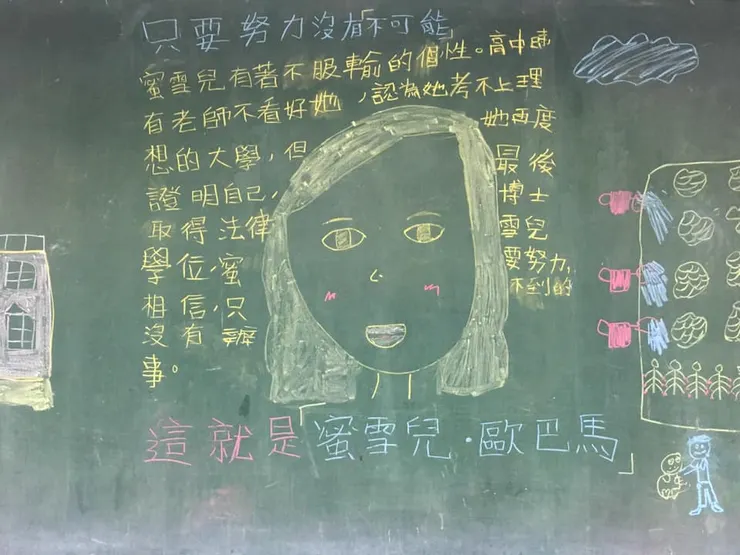 只要努力沒有不可能
蜜雪兒有著不服輸的個性。高中時
有老師不看好她，認為她考不上理
想的大學，但她再度
證明自己，最後
取得法律博士
學位，蜜雪兒
相信，只要努力，
沒有辦不到的
事。
這就是「蜜雪兒．歐巴馬」